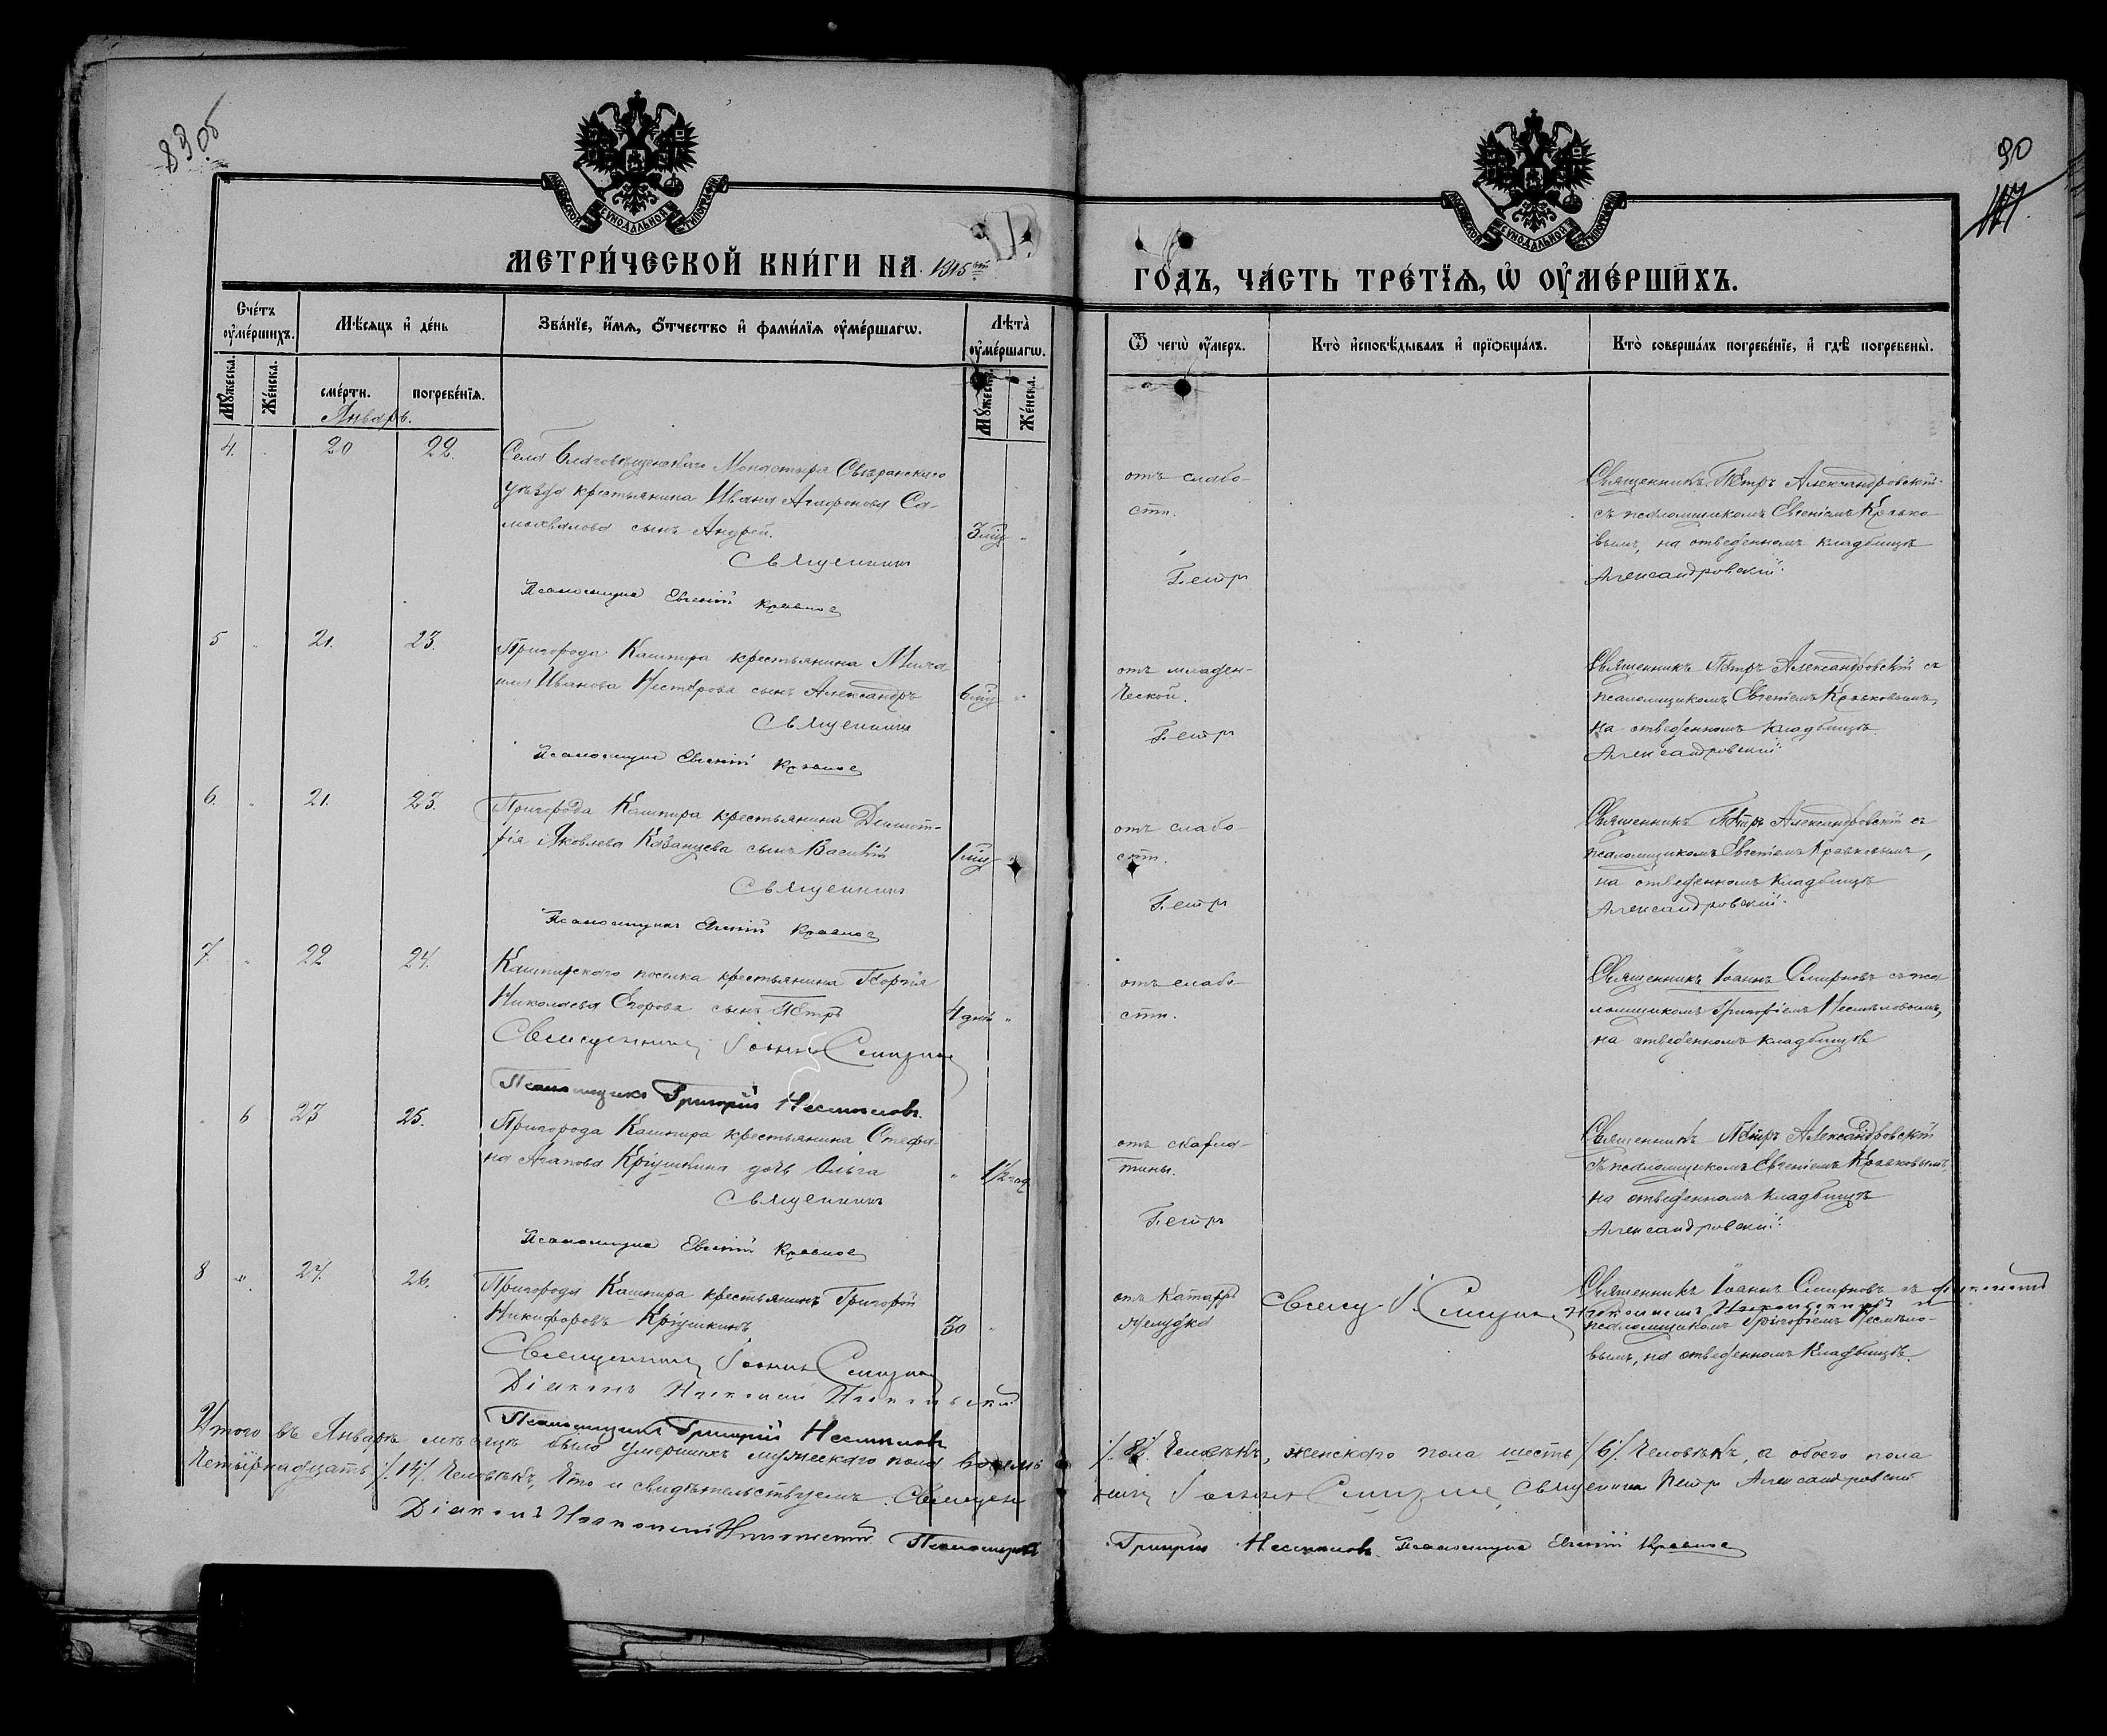 89об
90
МОСКОВСКОЙ СѴНОДАЛЬНОЙ ТИПОГРАФІИ
МОСКОВСКОЙ СѴНОДАЛЬНОЙ ТИПОГРАФІИ
МЕТРИ́ЧЕСКОЙ КНИ́ГИ НА 1915й
ГО́ДЪ, ЧА́СТЬ ТРЕ́ТЇѦ, Ѡ҆ ОУ҆МЕ́РШИХЪ.
Сче́тъ оу҆ме́ршихъ.
Мꙋ́жеска.
Же́нска.
Мѣ́сѧцъ и҆ де́нь
сме́рти.
погребе́нїѧ.
Зва́нїе, и҆́мѧ, ѻ҆́тчество и҆ фами́лїѧ оу҆ме́ршагѡ.
Лѣ́та оу҆ме́ршагѡ.
Мꙋ́жеска.
Же́нска.
Ѿ чегѡ̀ оу҆́меръ.
Кто̀ и҆сповѣ́дывалъ и҆ прїѻбща́лъ.
Кто̀ соверша́лъ погребе́нїе, и҆ гдѣ̀ погребены̀.
Январь.
4. 20 22.
Села Благовѣщенскаго Монастыря Сызранскаго
уѣзда крестьянина Ивана Агафонова Са-
мохвалова сынъ Андрей. 3 мц
Священникъ
Псаломщикъ Евгеній Кравков
отъ слабо-
сти.
Петръ
Священникъ Петръ Александровскій
съ псаломщикомъ Евгеніемъ Кравко
вымъ, на отведенномъ кладбищѣ
Александровскій.
5 " 21. 23.
Пригорода Кашпира крестьянина Миха
ила Иванова Нестерова сынъ Александръ 6 мц "
Священникъ
Псаломщикъ Евгеній Кравков
отъ младен-
ческой.
Петръ
Священникъ Петръ Александровскій съ
псаломщикомъ Евгеніемъ Кравковымъ,
на отведенномъ кладбищѣ.
Александровскій.
6. " 21. 23.
Пригорода Кашпира крестьянина Димит-
рія Яковлева Казанцева сынъ Василій 1 мц "
Священникъ
Псаломщикъ Евгеній Кравков
отъ слабо-
сти.
Петръ
Священникъ Петръ Александровскій съ
псаломщикомъ Евгеніемъ Кравковымъ,
на отведенномъ кладбищѣ
Александровскій.
7. " 22 24.
Кашпирскаго поселка крестьянина
Николаева Егорова сынъ Петръ 4 дня "
Священникъ Іоаннъ Смирнов
Псаломщикъ Григорій Несмѣловъ.
отъ слабо-
сти.
Священникъ Іоаннъ Смирновъ съ пса
ломщикомъ Григоріемъ Несмѣловымъ,
на отведенномъ кладбищѣ
" 6 23 25.
Пригорода Кашпира крестьянина Стефа-
на Агапова Кріушкина дочь Ольга " 1½ год
Священникъ
Псаломщикъ Евгеній Кравков
отъ скарла-
тины.
Петръ
Священникъ Петръ Александровскій
съ псаломщикомъ Евгеніемъ Кравковымъ,
на отведенномъ кладбищѣ
Александровскій.
8 " 24. 26.
Пригорода Кашпира крестьянинъ Григорій
Никифоровъ Кріушкинъ 30 "
Священникъ Іоаннъ Смирнов
Діаконъ
Псаломщикъ Григорій Несмѣловъ
отъ Катарра
желудка
Священ. І. Смирнов
Священникъ Іоаннъ Смирновъ съ діакономъ
псаломщикомъ Григоріемъ Несмѣло-
вымъ, на отведенномъ кладбищѣ.
Итого въ Январѣ мѣсяцѣ было умершихъ мужескаго пола восемь /.8/. Человѣкъ, женскаго пола шесть /6/. Человѣкъ, а обоего пола
Четырнадцать /.14/. Человѣкъ, Что и свидѣтельствуемъ. Священникъ Іоаннъ Смирнов, Священникъ Петръ Александровскій
Діаконъ Псаломщикъ Григорій Несмѣловъ. Псаломщикъ Евгеній Кравков